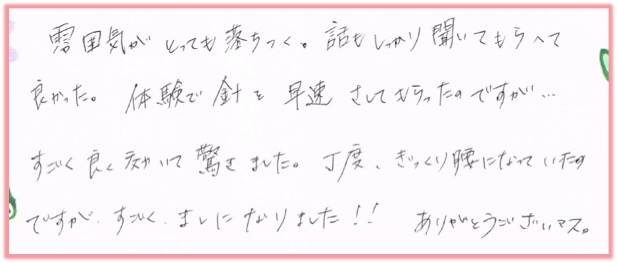 雰囲気がとっても落ちつく。話もしっかり聞いてもらえて
良かった。体験で針を早速さしてもらったのですが…
すごく良く効いて驚きました。丁度、ぎっくり腰になっていたの
ですが、すごく、ましになりました!! ありがとうございマス。